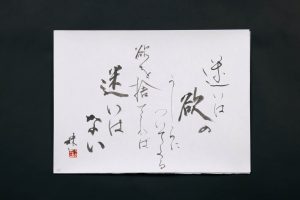 迷いは
欲の
うしろに
ついてくる
欲を捨てれば
迷いは
ない